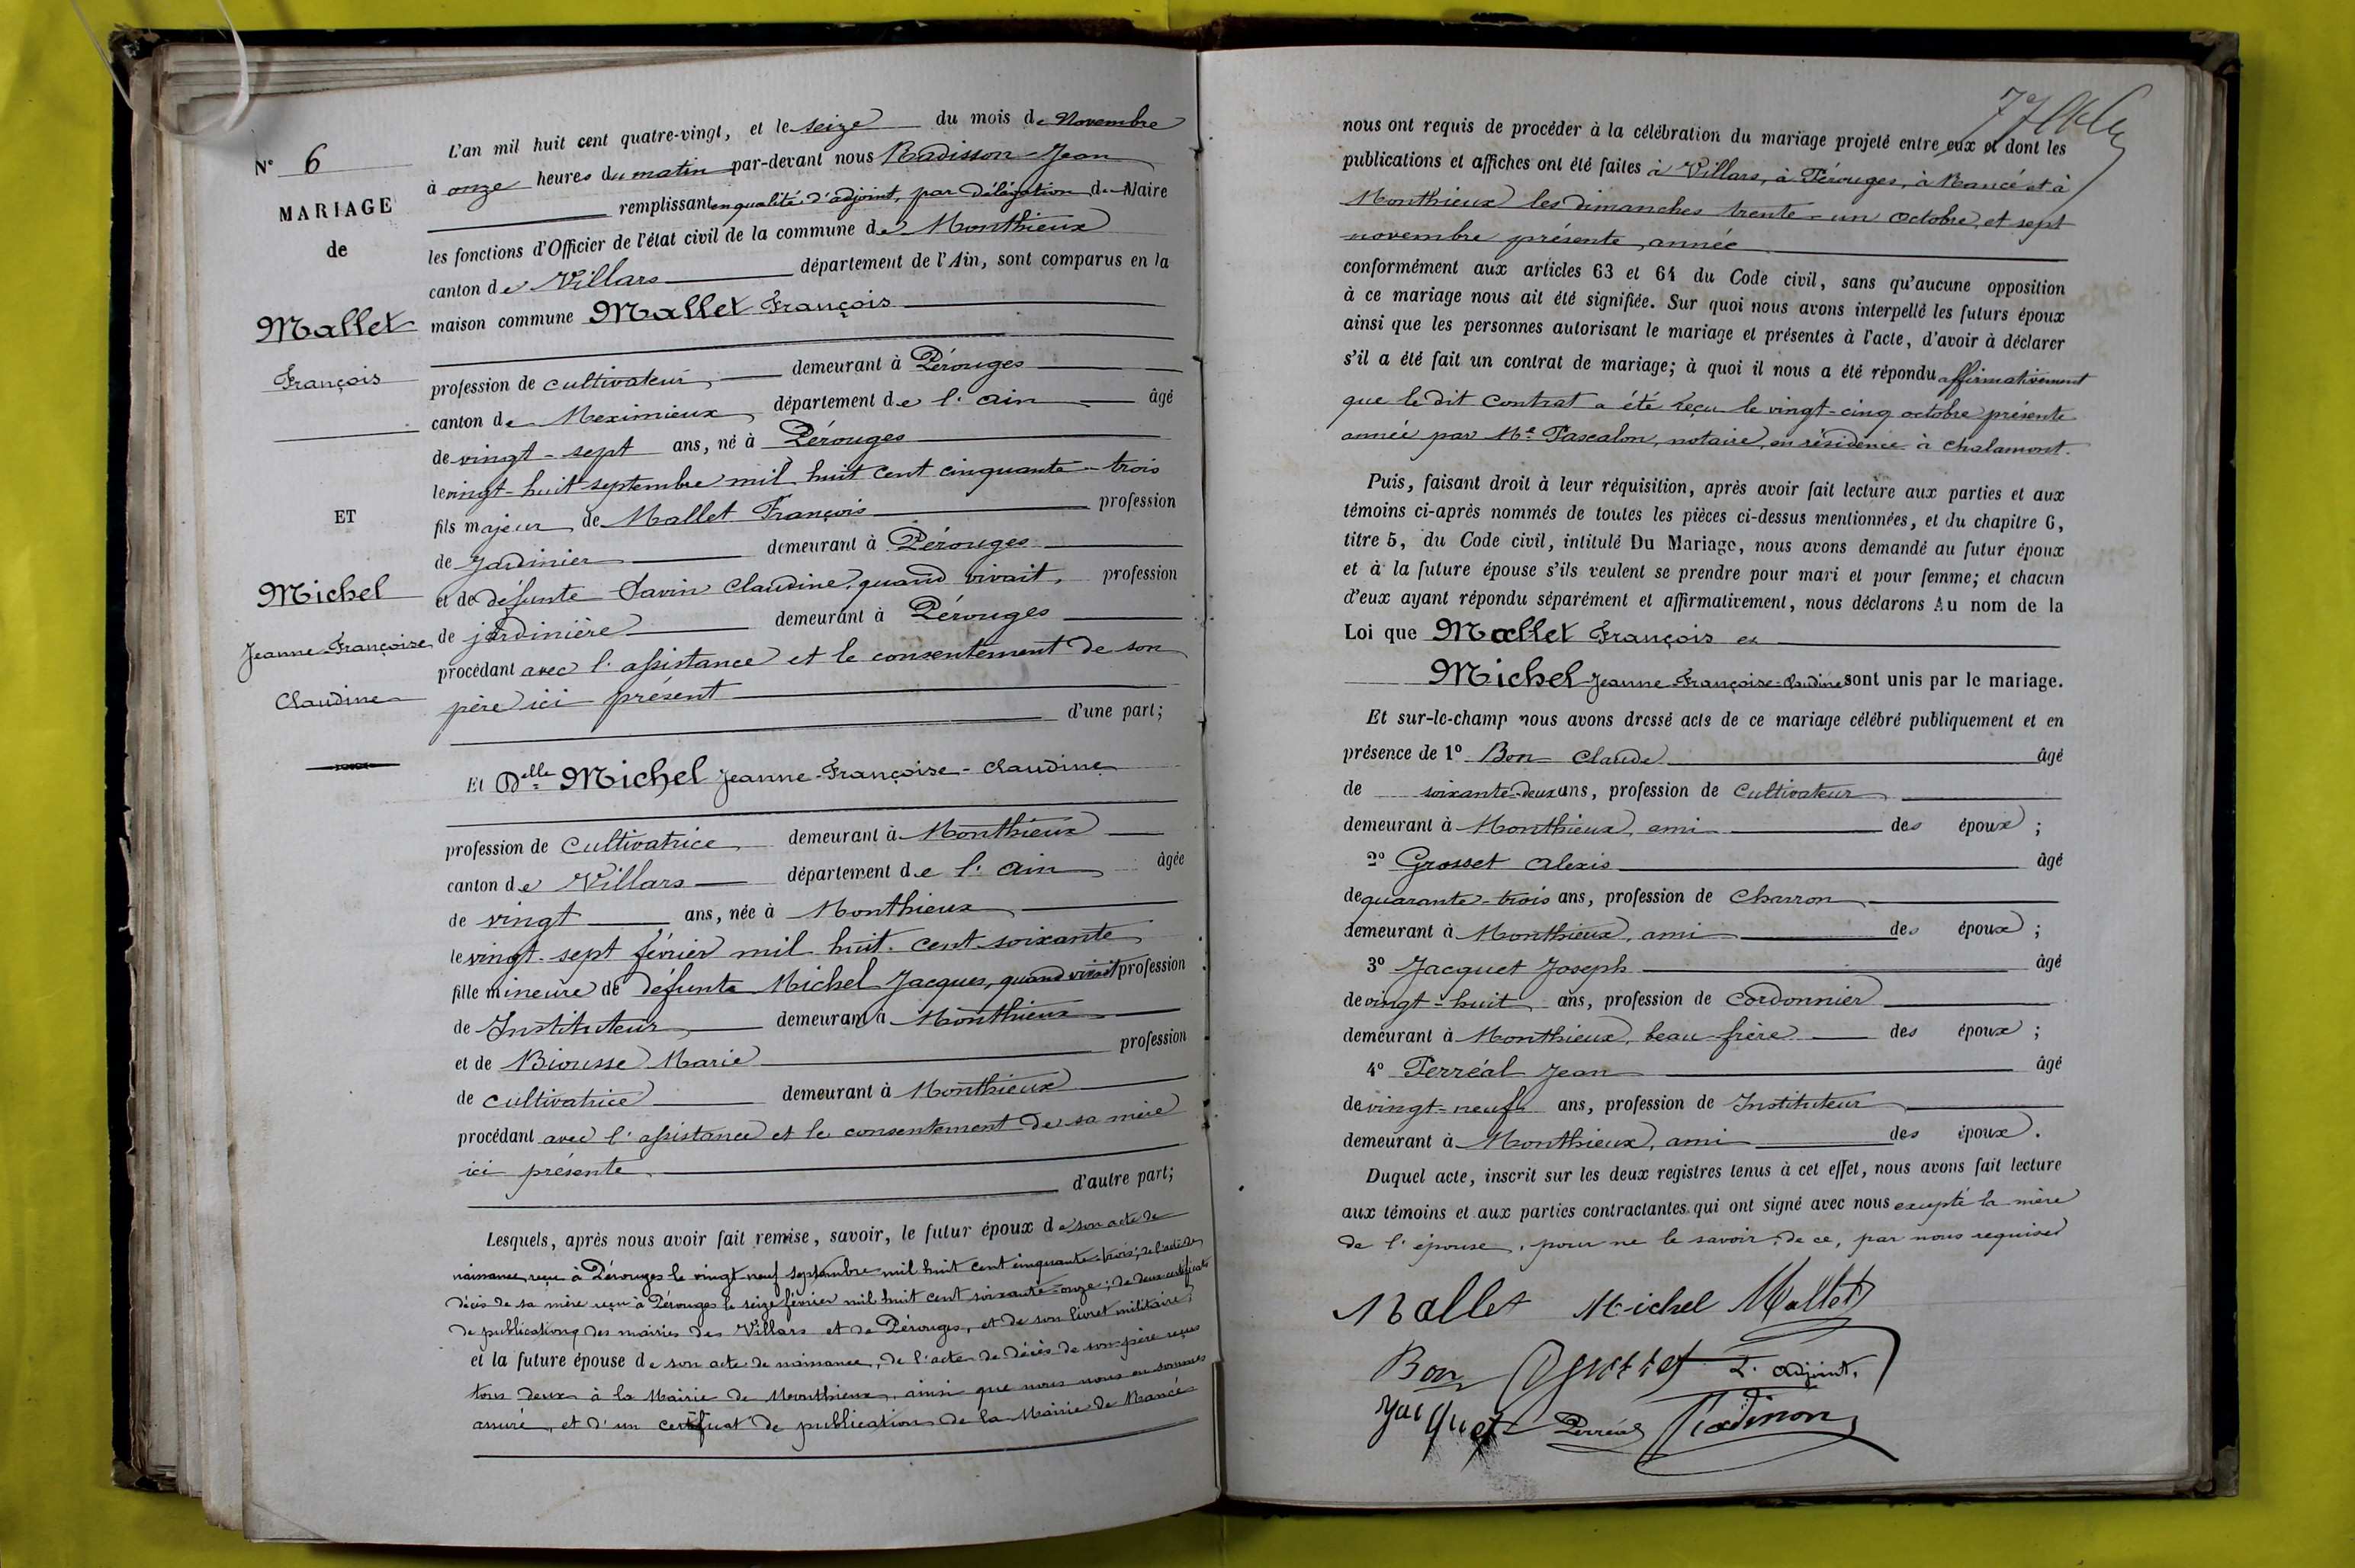 N° 6
MARIAGE
de
Mallet
François
ET
Michel
Jeanne-Françoise
Claudine
L'an mil huit cent quatre-vingt, et le seize du mois de Novembre
à onze heures du matin par-devant nous Radisson Jean
remplissant en qualité d'adjoint, par délégation du Maire
les fonctions d'Officier de l'état civil de la commune de Monthieux
canton de Villars département de l'Ain, sont comparus en la
maison commune Mallet François
profession de cultivateur demeurant à Pérouges
canton de Meximieux département de l'Ain âgé
de vingt-sept ans, né à Pérouges
le vingt-huit septembre mil huit cent cinquante-trois
fils majeur de Mallet François profession
de Jardinier demeurant à Pérouges
et de défunte Savin Claudine, quand vivait, profession
de jardinière demeurant à Pérouges
procédant avec l'assistance et le consentement de son
père ici présent
d'une part;
Et Delle Michel Jeanne-Françoise-Claudine
profession de cultivatrice demeurant à Monthieux
canton de Villars département de l'Ain âgée
de vingt ans, née à Monthieux
le vingt-sept février mil huit cent soixante
fille mineure de défunt Michel Jacques, quand vivait profession
de Instituteur demeurant à Monthieux
et de Biousse Marie profession
de cultivatrice demeurant à Monthieux
procédant avec l'assistance et le consentement de sa mère
ici présente
d'autre part;
Lesquels, après nous avoir fait remise, savoir, le futur époux de son acte de
naissance reçu à Pérouges le vingt-neuf septembre mil huit cent cinquante-trois; de l'acte de
décès de sa mère reçu à Pérouges le seize février mil huit cent soixante-onze; de deux certificats
de publications des mairies de Villars et de Pérouges, et de son livret militaire;
et la future épouse de son acte de naissance, de l'acte de décès de son père reçus
tous deux à la Mairie de Monthieux, ainsi que nous nous en sommes
assuré, et d'un certificat de publications de la Mairie de Rancé
nous ont requis de procéder à la célébration du mariage projeté entre eux et dont les
publications et affiches ont été faites à Villars, à Pérouges, à Rancé et à
Monthieux les dimanches trente-un octobre et sept
novembre présente année
conformément aux articles 63 et 64 du Code civil, sans qu'aucune opposition
à ce mariage nous ait été signifiée. Sur quoi nous avons interpellé les futurs époux
ainsi que les personnes autorisant le mariage et présentes à l'acte, d'avoir à déclarer
s'il a été fait un contrat de mariage; à quoi il nous a été répondu affirmativement
que le dit contrat a été reçu le vingt-cinq octobre présente
année par Me Pascalon, notaire, en résidence à Chalamont.
Puis, faisant droit à leur réquisition, après avoir fait lecture aux parties et aux
témoins ci-après nommés de toutes les pièces ci-dessus mentionnées, et du chapitre 6,
titre 5, du Code civil, intitulé Du Mariage, nous avons demandé au futur époux
et à la future épouse s'ils veulent se prendre pour mari et pour femme; et chacun
d'eux ayant répondu séparément et affirmativement, nous déclarons Au nom de la
Loi que Mallet François et
Michel Jeanne-Françoise-Claudine sont unis par le mariage.
Et sur-le-champ nous avons dressé acte de ce mariage célébré publiquement et en
présence de 1° Bon Claude âgé
de soixante-deux ans, profession de Cultivateur
demeurant à Monthieux, ami des époux;
2° Grosset Alexis âgé
de quarante-trois ans, profession de Charron
demeurant à Monthieux, ami des époux;
3° Jacquet Joseph âgé
de vingt-huit ans, profession de Cordonnier
demeurant à Monthieux, beau-frère des époux;
4° Perréal Jean âgé
de vingt-neuf ans, profession de Instituteur
demeurant à Monthieux, ami des époux.
Duquel acte, inscrit sur les deux registres tenus à cet effet, nous avons fait lecture
aux témoins et aux parties contractantes qui ont signé avec nous excepté la mère
de l'épouse, pour ne le savoir, de ce, par nous requise
Mallet Michel Mallet
Bon Grosset L'adjoint,
Jacquet Perréal Radisson